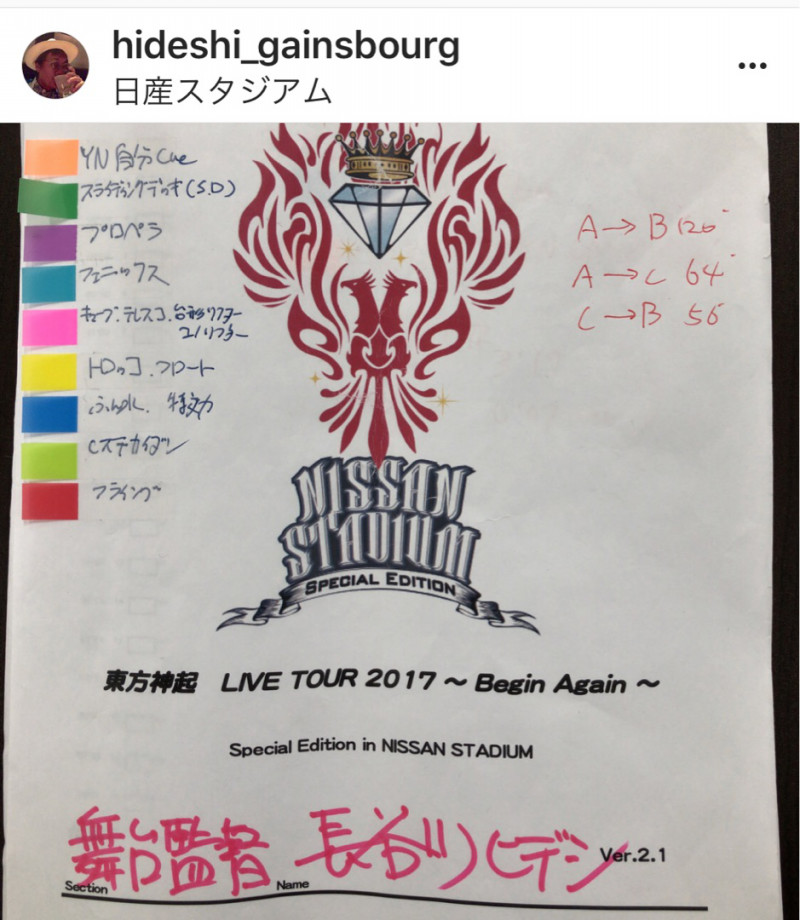 hideshi_gainsbourg
日産スタジアム
YN 自分 Cue
スライディングデッキ(S.D)
プロペラ
フェニックス
キューブ.テレスコ.台形リフター
コノリフター
トロッコ.フロート
ふん水. 特効
Cステカイダン
フライング
A→B 120°
A→C 64°
C→B 56
NISSAN
STADIUM
SPECIAL EDITION
東方神起 LIVE TOUR 2017 ～ Begin Again ～
Special Edition in NISSAN STADIUM
舞台監督 長谷川ヒデシ
Ver.2.1
Section Name